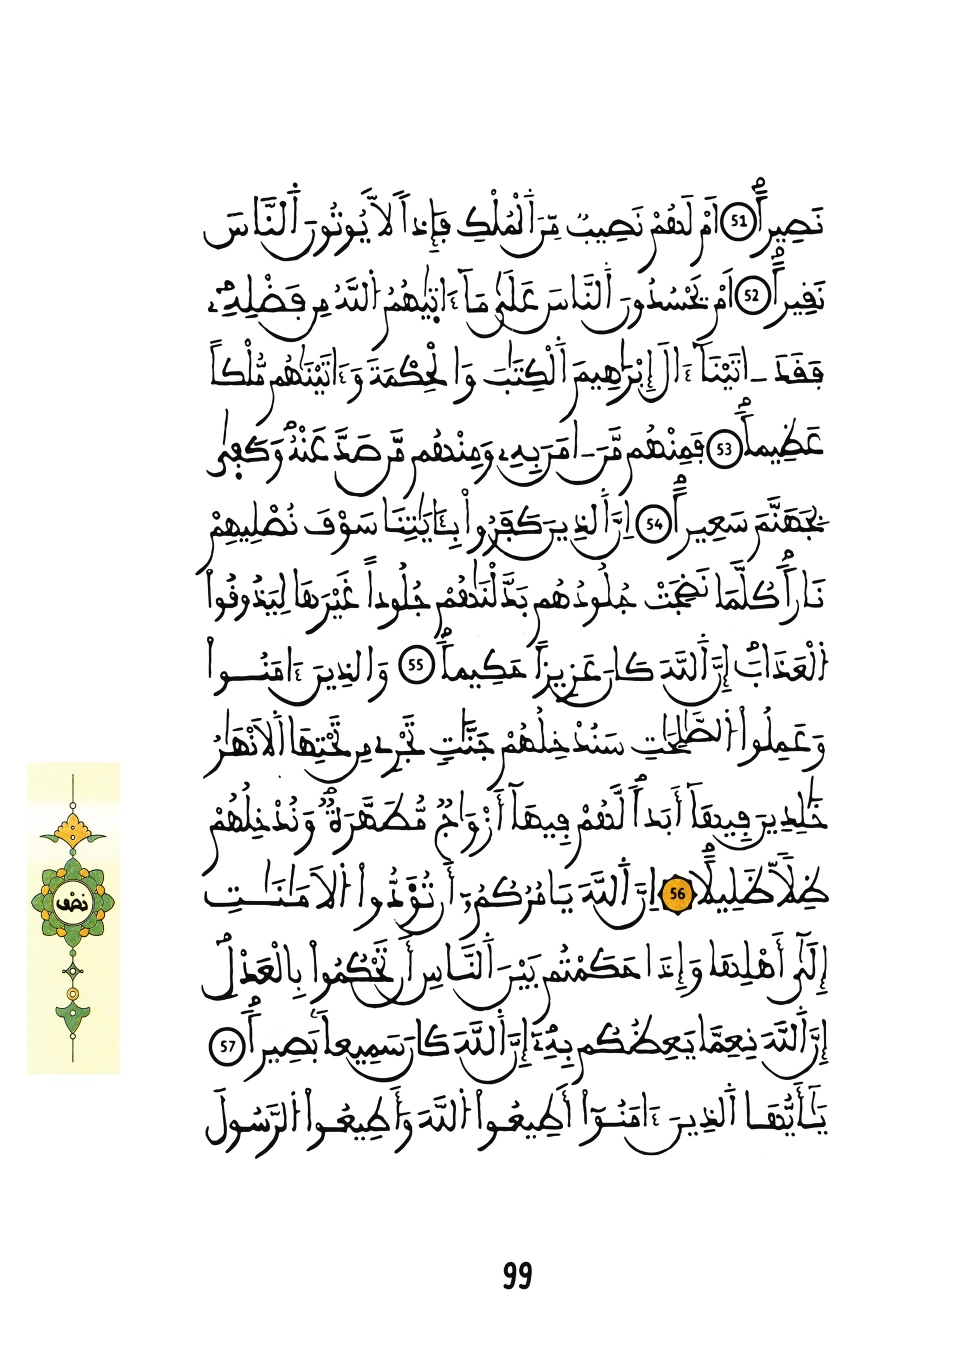 نَصِيراً 51 اَمْ لَهُمْ نَصِيبٌ مِّنَ اَ۬لْمُلْكِ فَإِذاٗ لَّا يُوتُونَ اَ۬لنَّاسَ
نَقِيراً 52 اَمْ يَحْسُدُونَ اَ۬لنَّاسَ عَلَىٰ مَآ ءَاتٜيٰهُمُ اُ۬للَّهُ مِن فَضْلِهِۦۖ
فَقَدَ ـ اتَيْنَآ ءَالَ إِبْرَٰهِيمَ اَ۬لْكِتَٰبَ وَالْحِكْمَةَ وَءَاتَيْنَٰهُم مُّلْكاً
عَظِيماٗۖ 53 فَمِنْهُم مَّنَ ـ اٰمَنَ بِهِۦ وَمِنْهُم مَّن صَدَّ عَنْهُۖ وَكَفٜىٰ
بِجَهَنَّمَ سَعِيراًۖ 54 اِنَّ اَ۬لذِينَ كَفَرُواْ بِـَٔايَٰتِنَا سَوْفَ نُصْلِيهِمْ
نَاراٗۖ كُلَّمَا نَضِجَتْ جُلُودُهُم بَدَّلْنَٰهُمْ جُلُوداً غَيْرَهَا لِيَذُوقُواْ
اُ۬لْعَذَابَۖ إِنَّ اَ۬للَّهَ كَانَ عَزِيزاً حَكِيماٗۖ 55 وَالذِينَ ءَامَنُواْ
وَعَمِلُواْ اُ۬لصَّٰلِحَٰتِ سَنُدْخِلُهُمْ جَنَّٰتٖ تَجْرِے مِن تَحْتِهَا اَ۬لَانْهَٰرُ
خَٰلِدِينَ فِيهَآ أَبَداٗۖ لَّهُمْ فِيهَآ أَزْوَٰجٞ مُّطَهَّرَةٞۖ وَنُدْخِلُهُمْ
ظِلّاٗ ظَلِيلًاۖ 56 اِنَّ اَ۬للَّهَ يَامُرُكُمُۥٓ أَن تُؤَدُّواْ اُ۬لَامَٰنَٰتِ
إِلَىٰٓ أَهْلِهَا وَإِذَا حَكَمْتُم بَيْنَ اَ۬لنَّاسِ أَن تَحْكُمُواْ بِالْعَدْلِۖ
إِنَّ اَ۬للَّهَ نِعِمَّا يَعِظُكُم بِهِۦٓۖ إِنَّ اَ۬للَّهَ كَانَ سَمِيعاَۢ بَصِيراٗۖ 57
يَٰٓأَيُّهَا اَ۬لذِينَ ءَامَنُوٓاْ أَطِيعُواْ اُ۬للَّهَ وَأَطِيعُواْ اُ۬لرَّسُولَ
نصف
99